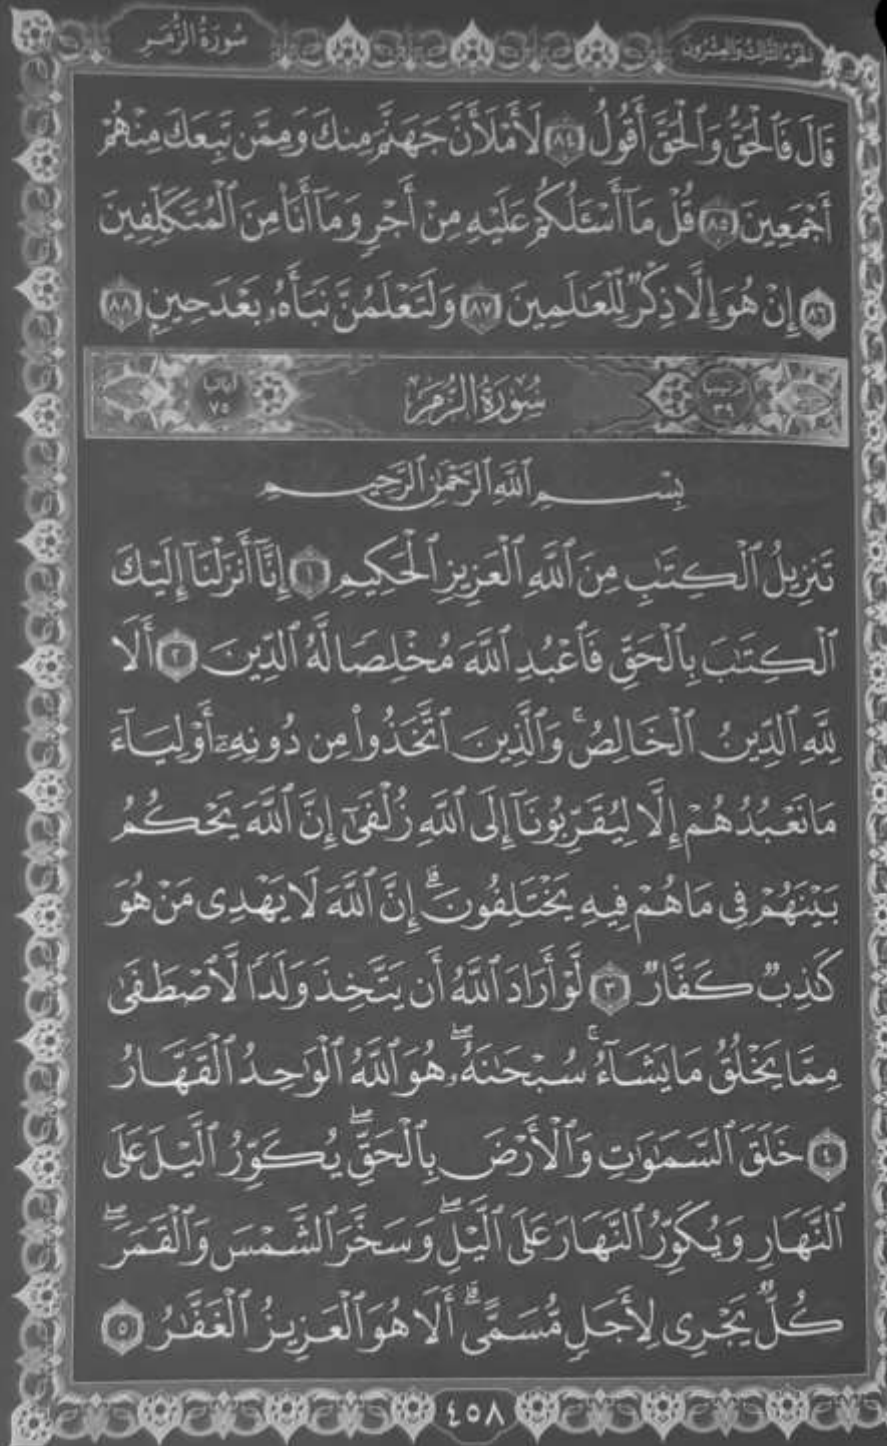 الجزء الثالث والعشرون
سُورَةُ الزُّمَرِ
قَالَ فَٱلْحَقُّ وَٱلْحَقَّ أَقُولُ ٨٤ لَأَمْلَأَنَّ جَهَنَّمَ مِنكَ وَمِمَّن تَبِعَكَ مِنْهُمْ
أَجْمَعِينَ ٨٥ قُلْ مَآ أَسْـَٔلُكُمْ عَلَيْهِ مِنْ أَجْرٍ وَمَآ أَنَا۠ مِنَ ٱلْمُتَكَلِّفِينَ
٨٦ إِنْ هُوَ إِلَّا ذِكْرٌ لِّلْعَٰلَمِينَ ٨٧ وَلَتَعْلَمُنَّ نَبَأَهُۥ بَعْدَ حِينٍۭ ٨٨
ترتيبها ٣٩
سُورَةُ الزُّمَرِ
آياتها ٧٥
بِسْمِ ٱللَّهِ ٱلرَّحْمَٰنِ ٱلرَّحِيمِ
تَنزِيلُ ٱلْكِتَٰبِ مِنَ ٱللَّهِ ٱلْعَزِيزِ ٱلْحَكِيمِ ١ إِنَّآ أَنزَلْنَآ إِلَيْكَ
ٱلْكِتَٰبَ بِٱلْحَقِّ فَٱعْبُدِ ٱللَّهَ مُخْلِصًا لَّهُ ٱلدِّينَ ٢ أَلَا
لِلَّهِ ٱلدِّينُ ٱلْخَالِصُ ۚ وَٱلَّذِينَ ٱتَّخَذُوا۟ مِن دُونِهِۦٓ أَوْلِيَآءَ
مَا نَعْبُدُهُمْ إِلَّا لِيُقَرِّبُونَآ إِلَى ٱللَّهِ زُلْفَىٰٓ إِنَّ ٱللَّهَ يَحْكُمُ
بَيْنَهُمْ فِى مَا هُمْ فِيهِ يَخْتَلِفُونَ ۗ إِنَّ ٱللَّهَ لَا يَهْدِى مَنْ هُوَ
كَٰذِبٌ كَفَّارٌ ٣ لَّوْ أَرَادَ ٱللَّهُ أَن يَتَّخِذَ وَلَدًا لَّٱصْطَفَىٰ
مِمَّا يَخْلُقُ مَا يَشَآءُ ۚ سُبْحَٰنَهُۥ ۖ هُوَ ٱللَّهُ ٱلْوَٰحِدُ ٱلْقَهَّارُ
٤ خَلَقَ ٱلسَّمَٰوَٰتِ وَٱلْأَرْضَ بِٱلْحَقِّ ۖ يُكَوِّرُ ٱلَّيْلَ عَلَى
ٱلنَّهَارِ وَيُكَوِّرُ ٱلنَّهَارَ عَلَى ٱلَّيْلِ ۖ وَسَخَّرَ ٱلشَّمْسَ وَٱلْقَمَرَ ۖ
كُلٌّ يَجْرِى لِأَجَلٍ مُّسَمًّى ۗ أَلَا هُوَ ٱلْعَزِيزُ ٱلْغَفَّٰرُ ٥
٤٥٨